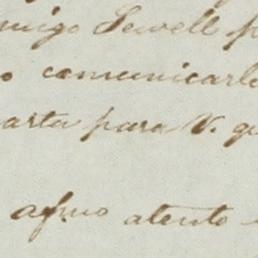 migo Sewell p
o comunicarle
arta para V. qu
afmo atento